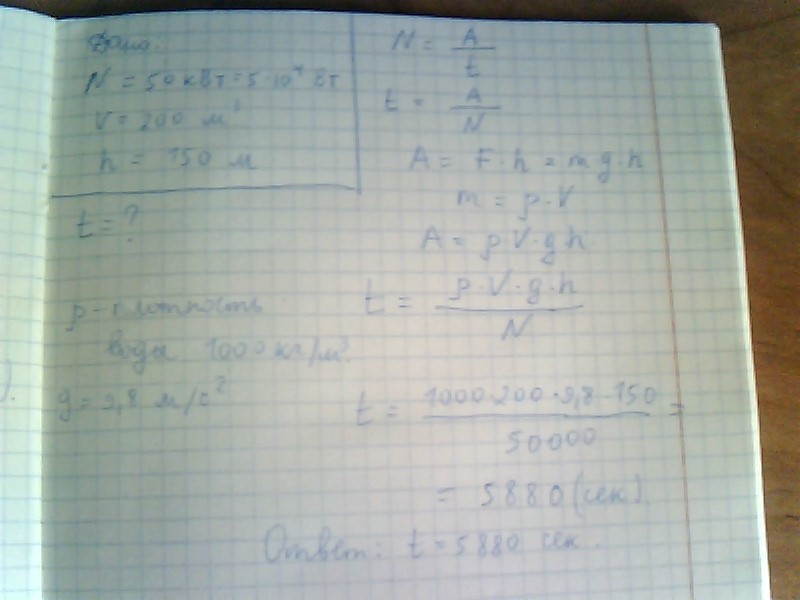 Дано:
N = 50 кВт = 5·10⁴ Вт
V = 200 м³
h = 150 м
t = ?
ρ - плотность
воды 1000 кг/м³.
g = 9,8 м/с²
N = A/t
t = A/N
A = F·h = mg·h
m = ρ·V
A = ρ·V·gh
t = ρ·V·g·h/N
t = 1000·200·9,8·150/50000 =
= 5880 (сек).
Ответ: t = 5880 сек.